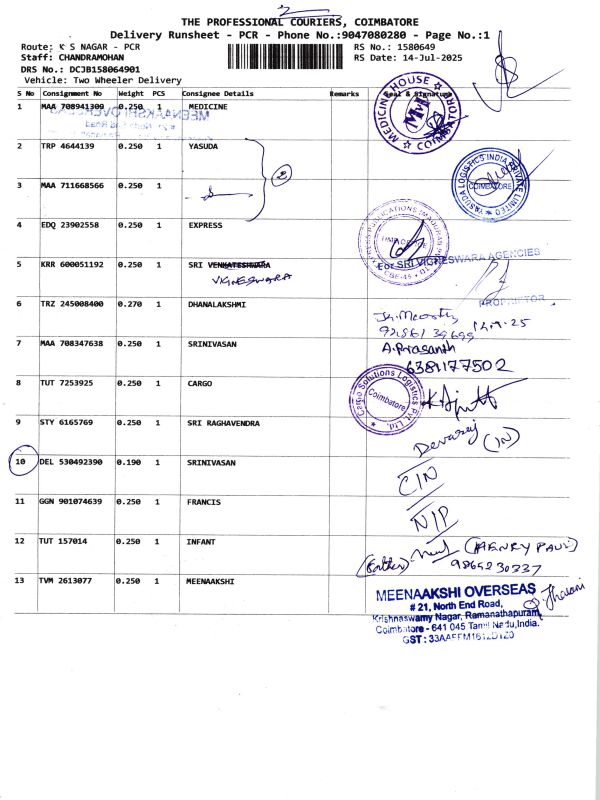 2
THE PROFESSIONAL COURIERS, COIMBATORE
Delivery Runsheet - PCR - Phone No.:9047080280 - Page No.:1
Route: K S NAGAR - PCR
RS No.: 1580649
Staff: CHANDRAMOHAN
RS Date: 14-Jul-2025
DRS No.: DCJB158064901
Vehicle: Two Wheeler Delivery
S No Consignment No Weight PCS Consignee Details Remarks Seal & Signature
1 MAA 708941309 0.250 1 MEDICINE
MEDICINE HOUSE COIMBATORE
2 TRP 4644139 0.250 1 YASUDA
YASUDA LOGISTICS INDIA PRIVATE LIMITED
COIMBATORE
3 MAA 711668566 0.250 1
2
4 EDQ 23902558 0.250 1 EXPRESS
EXPRESS PUBLICATIONS (MADURAI)
5 KRR 600051192 0.250 1 SRI VENKATESHWARA
VIGNESWARA
For SRI VIGNESWARA AGENCIES
PROPRIETOR
6 TRZ 245008400 0.270 1 DHANALAKSHMI
7 MAA 708347638 0.250 1 SRINIVASAN
A.Prasanth
6381177502
8 TUT 7253925 0.250 1 CARGO
Cargo Solutions Logistics Pvt Ltd.
Coimbatore
9 STY 6165769 0.250 1 SRI RAGHAVENDRA
Devaraj (IN)
10 DEL 530492390 0.190 1 SRINIVASAN
CIN
11 GGN 901074639 0.250 1 FRANCIS
NIP
12 TUT 157014 0.250 1 INFANT
(Father) (HENRY PAUL)
9865230337
13 TVM 2613077 0.250 1 MEENAAKSHI
MEENAAKSHI OVERSEAS
# 21, North End Road,
Krishnaswamy Nagar, Ramanathapuram,
Coimbatore - 641 045 Tamil Nadu,India.